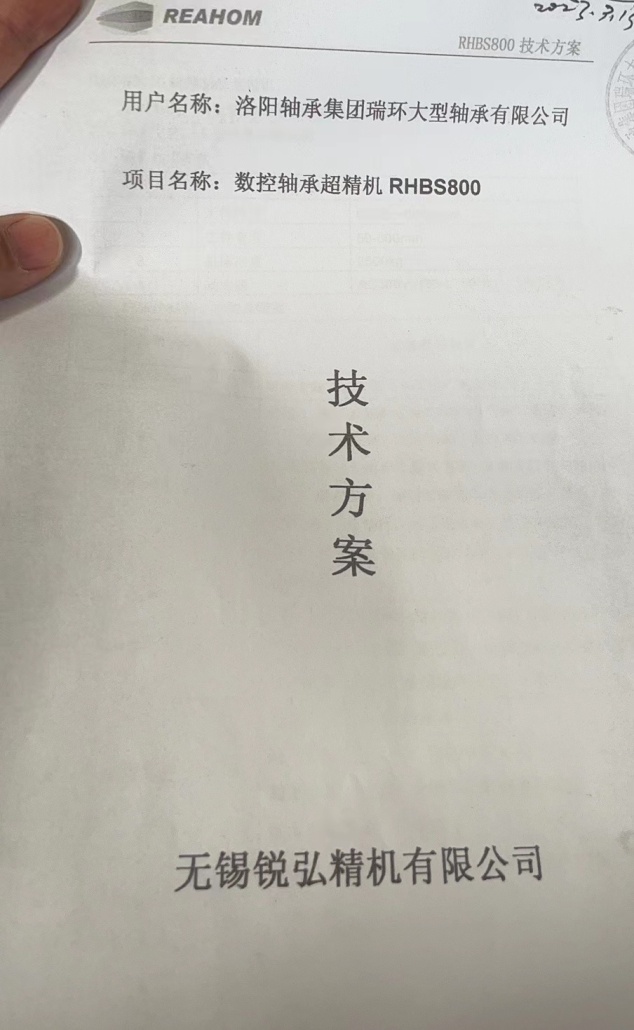 REAHOM
RHBS800 技术方案
用户名称：洛阳轴承集团瑞环大型轴承有限公司
项目名称：数控轴承超精机 RHBS800
技
术
方
案
无锡锐弘精机有限公司